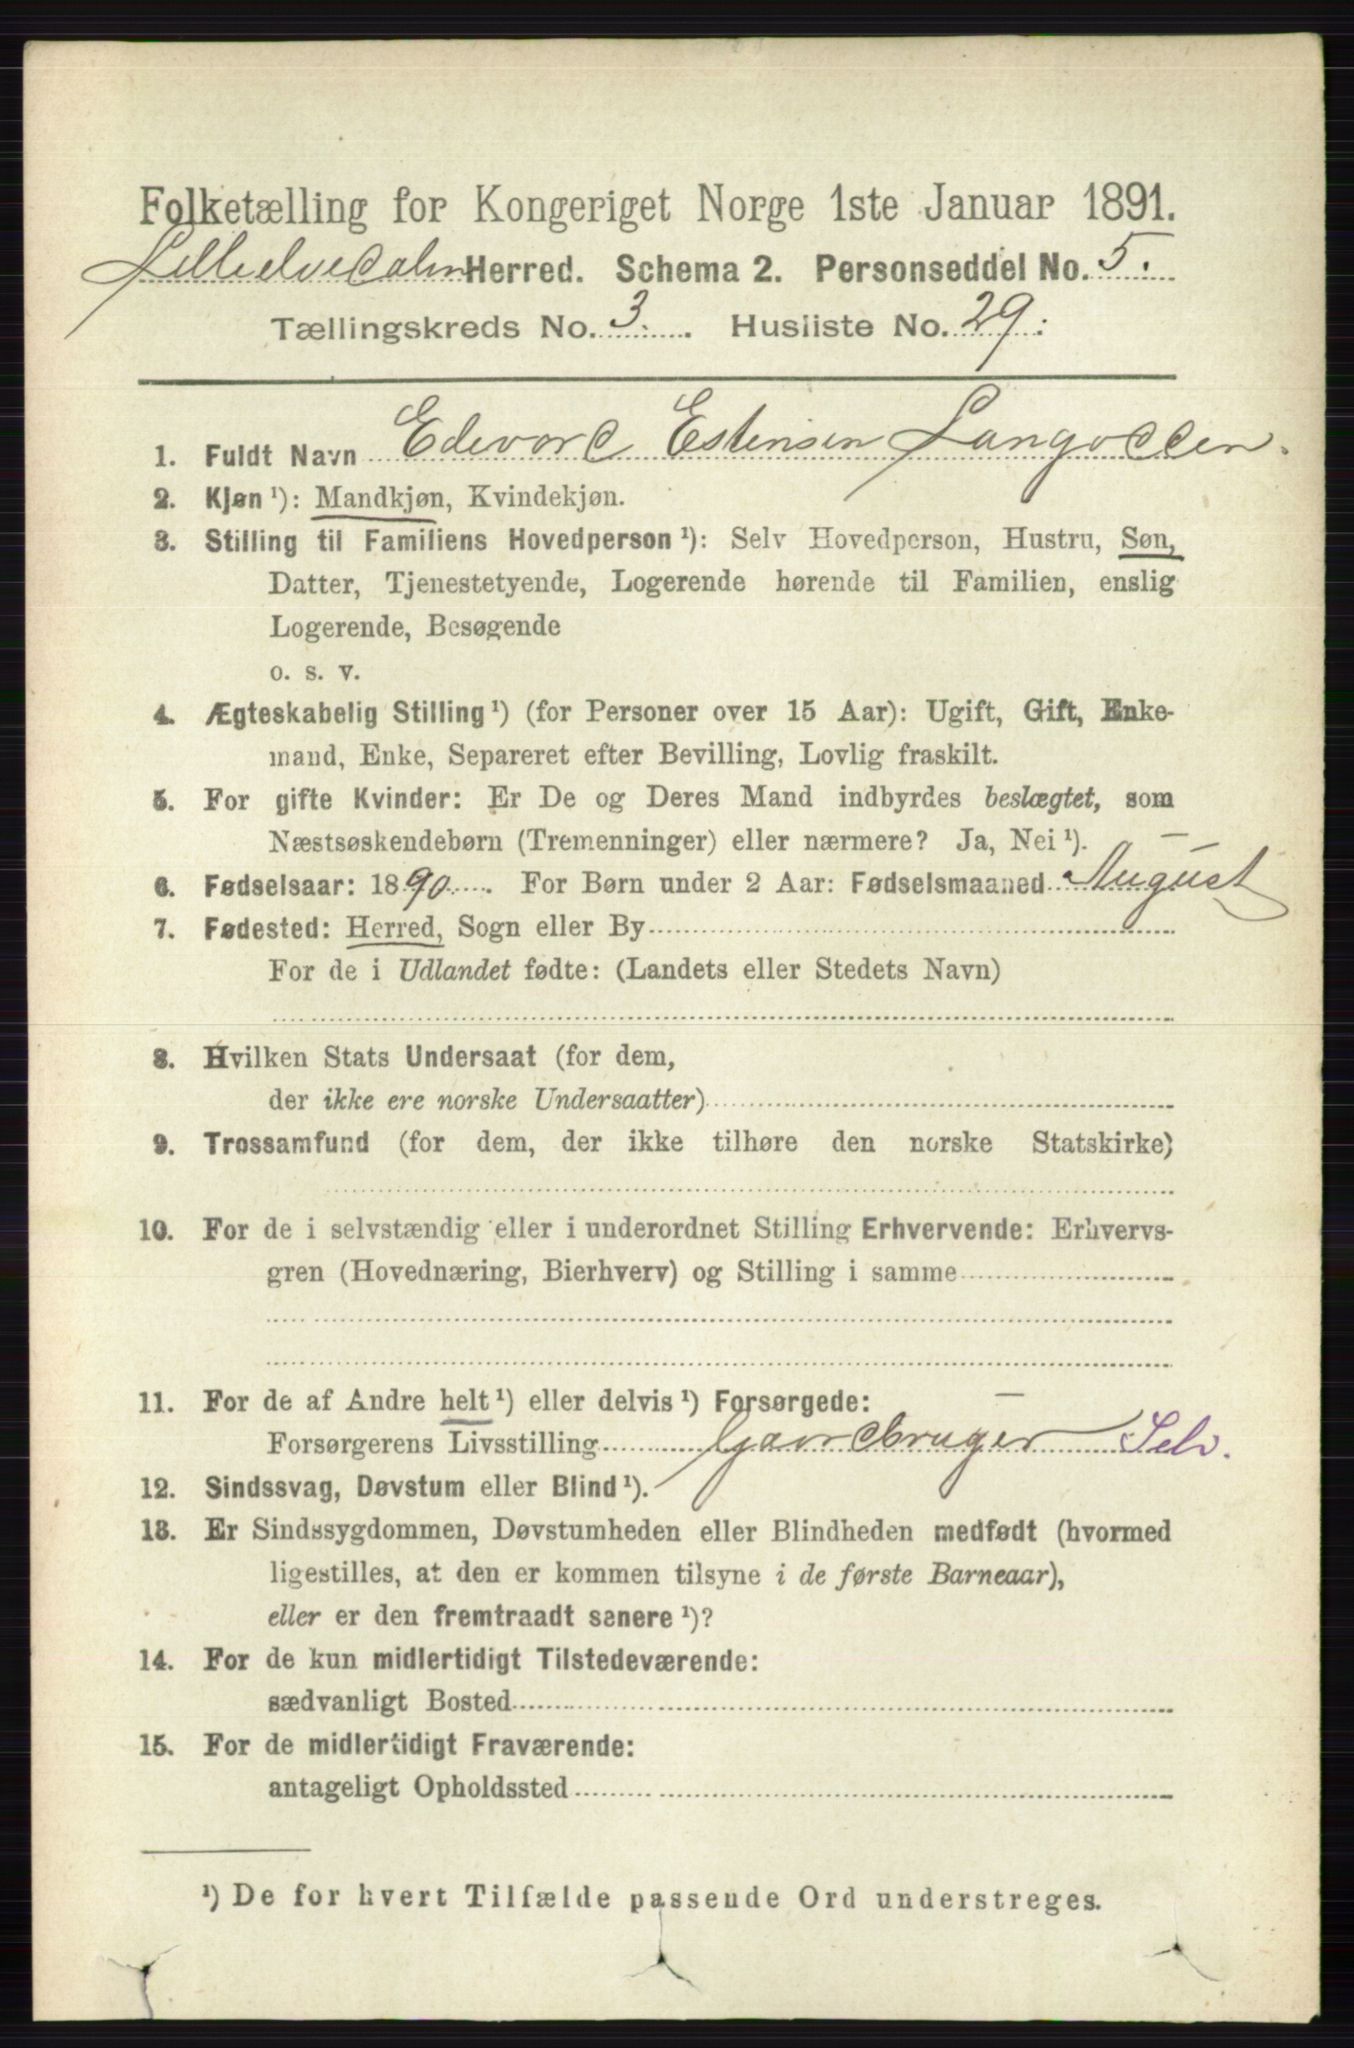 Folketælling for Kongeriget Norge 1ste Januar 1891.
Lilleelvedalen Herred. Schema 2. Personseddel No. 5.
Tællingskreds No. 3. Husliste No. 29.
1. Fuldt Navn Edevard Estensen Langodden.
2. Kjøn ¹): Mandkjøn, Kvindekjøn.
3. Stilling til Familiens Hovedperson ¹): Selv Hovedperson, Hustru, Søn,
Datter, Tjenestetyende, Logerende hørende til Familien, enslig
Logerende, Besøgende
o. s. v.
4. Ægteskabelig Stilling ¹) (for Personer over 15 Aar): Ugift, Gift, Enke-
mand, Enke, Separeret efter Bevilling, Lovlig fraskilt.
5. For gifte Kvinder: Er De og Deres Mand indbyrdes beslægtet, som
Næstsøskendebørn (Tremenninger) eller nærmere? Ja, Nei ¹).
6. Fødselsaar: 1890. For Børn under 2 Aar: Fødselsmaaned August
7. Fødested: Herred, Sogn eller By
For de i Udlandet fødte: (Landets eller Stedets Navn)
8. Hvilken Stats Undersaat (for dem,
der ikke ere norske Undersaatter)
9. Trossamfund (for dem, der ikke tilhøre den norske Statskirke)
10. For de i selvstændig eller i underordnet Stilling Erhvervende: Erhvervs-
gren (Hovednæring, Bierhverv) og Stilling i samme
11. For de af Andre helt ¹) eller delvis ¹) Forsørgede:
Forsørgerens Livsstilling Gaardbruger Selv.
12. Sindssvag, Døvstum eller Blind ¹).
13. Er Sindssygdommen, Døvstumheden eller Blindheden medfødt (hvormed
ligestilles, at den er kommen tilsyne i de første Barneaar),
eller er den fremtraadt senere ¹)?
14. For de kun midlertidigt Tilstedeværende:
sædvanligt Bosted
15. For de midlertidigt Fraværende:
antageligt Opholdssted
¹) De for hvert Tilfælde passende Ord understreges.